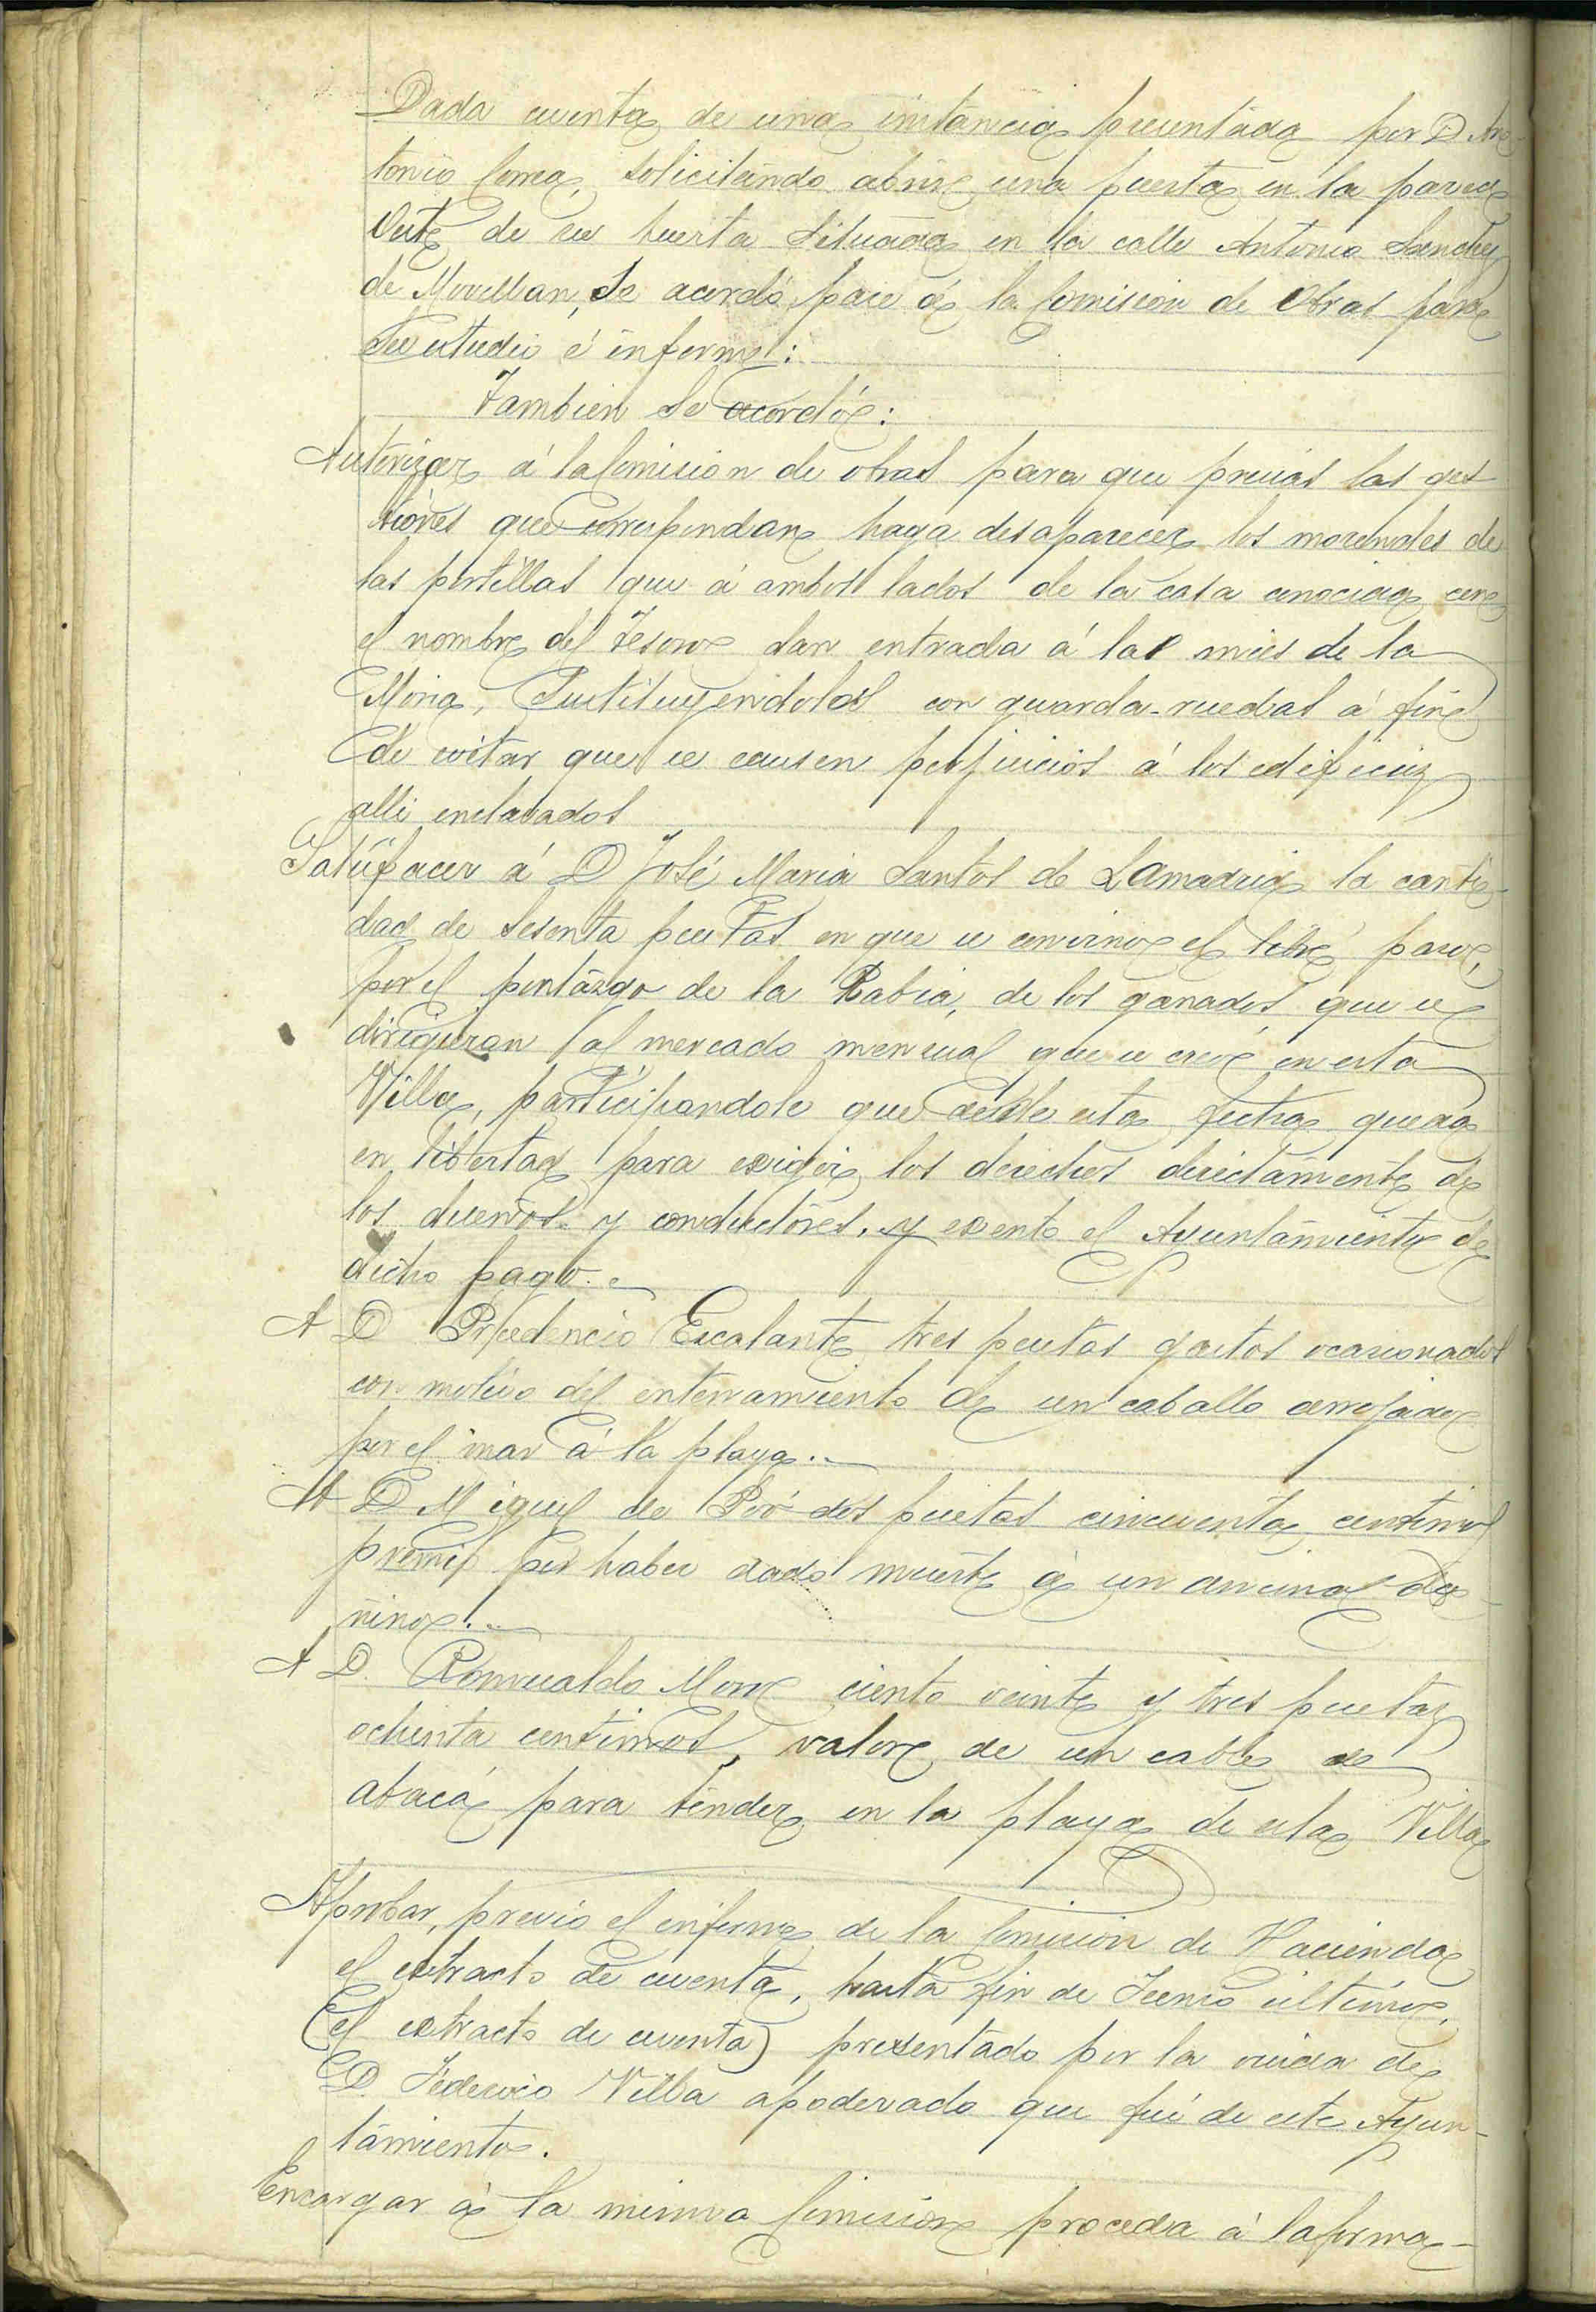 Dada cuenta de una instancia presentada por D. An-
tonio Coma, solicitando abrir una puerta en la pared
Oeste de su huerta situada en la calle Antonio Sanchez
de Movellan, se acordó pase á la Comision de Obras para
su estudio é informe:
Tambien se acordó:
Autorizar á la Comision de obras para que previas las ges
tiones que correspondan haga desaparecer los morenales de
las portillas que á ambos lados de la casa conocida con
el nombre del Tesoro dan entrada á las mies de la
Moria, sustituyendolos con guarda-ruedas á fin
de evitar que se causen perjuicios á los edificios
alli enclavados
Satisfacer á D José Maria Santos de Lamadrid la canti-
dad de sesenta pesetas en que se convino el libre paso,
por el pontazgo de la Rabia, de los ganados que se
dirigieran al mercado mensual que se creó en esta
Villa, participandole que desde esta fecha queda
en libertad para exigir los derechos directamente de
los dueños y conductores, y exento el Ayuntamiento de
dicho pago.
A D Prudencio Escalante tres pesetas gastos ocasionados
con motivo del enterramiento de un caballo arrojado
por el mar á la playa.
A D Miguel de Poó dos pesetas cincuenta centimos
premio por haber dado muerte á un animal da-
ñino.
A D. Romualdo Moro ciento veinte y tres pesetas
ochenta centimos, valor de un cable de
abacá para tender en la playa de esta Villa
Aprobar, previo el informe de la Comision de Hacienda
el extracto de cuenta, hasta fin de Junio ultimo,
(el extracto de cuenta) presentado por la viuda de
D. Federico Villa apoderado que fué de este Ayun-
tamiento.
Encargar á la misma Comision proceda á la forma-